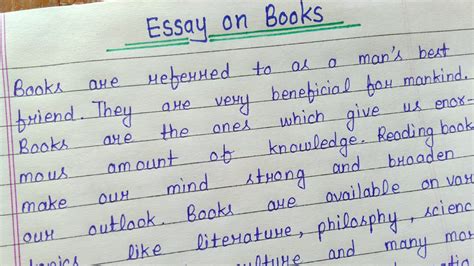 Essay on Books
Books are referred to as a man's best
friend. They are very beneficial for mankind.
Books are the ones which give us enor-
mous amount of knowledge. Reading book
make our mind strong and broaden
our outlook. Books are available on var
topics like literature, philosphy, scienc
culture and many mor